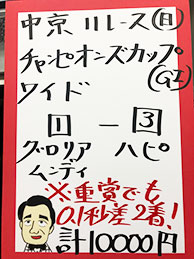 中京11レース(日)
チャンピオンズカップ
(GI)
ワイド
1 - 3
グロリア ハピ
ムンディ
※重賞でも
0.1秒差2着!
計10000円